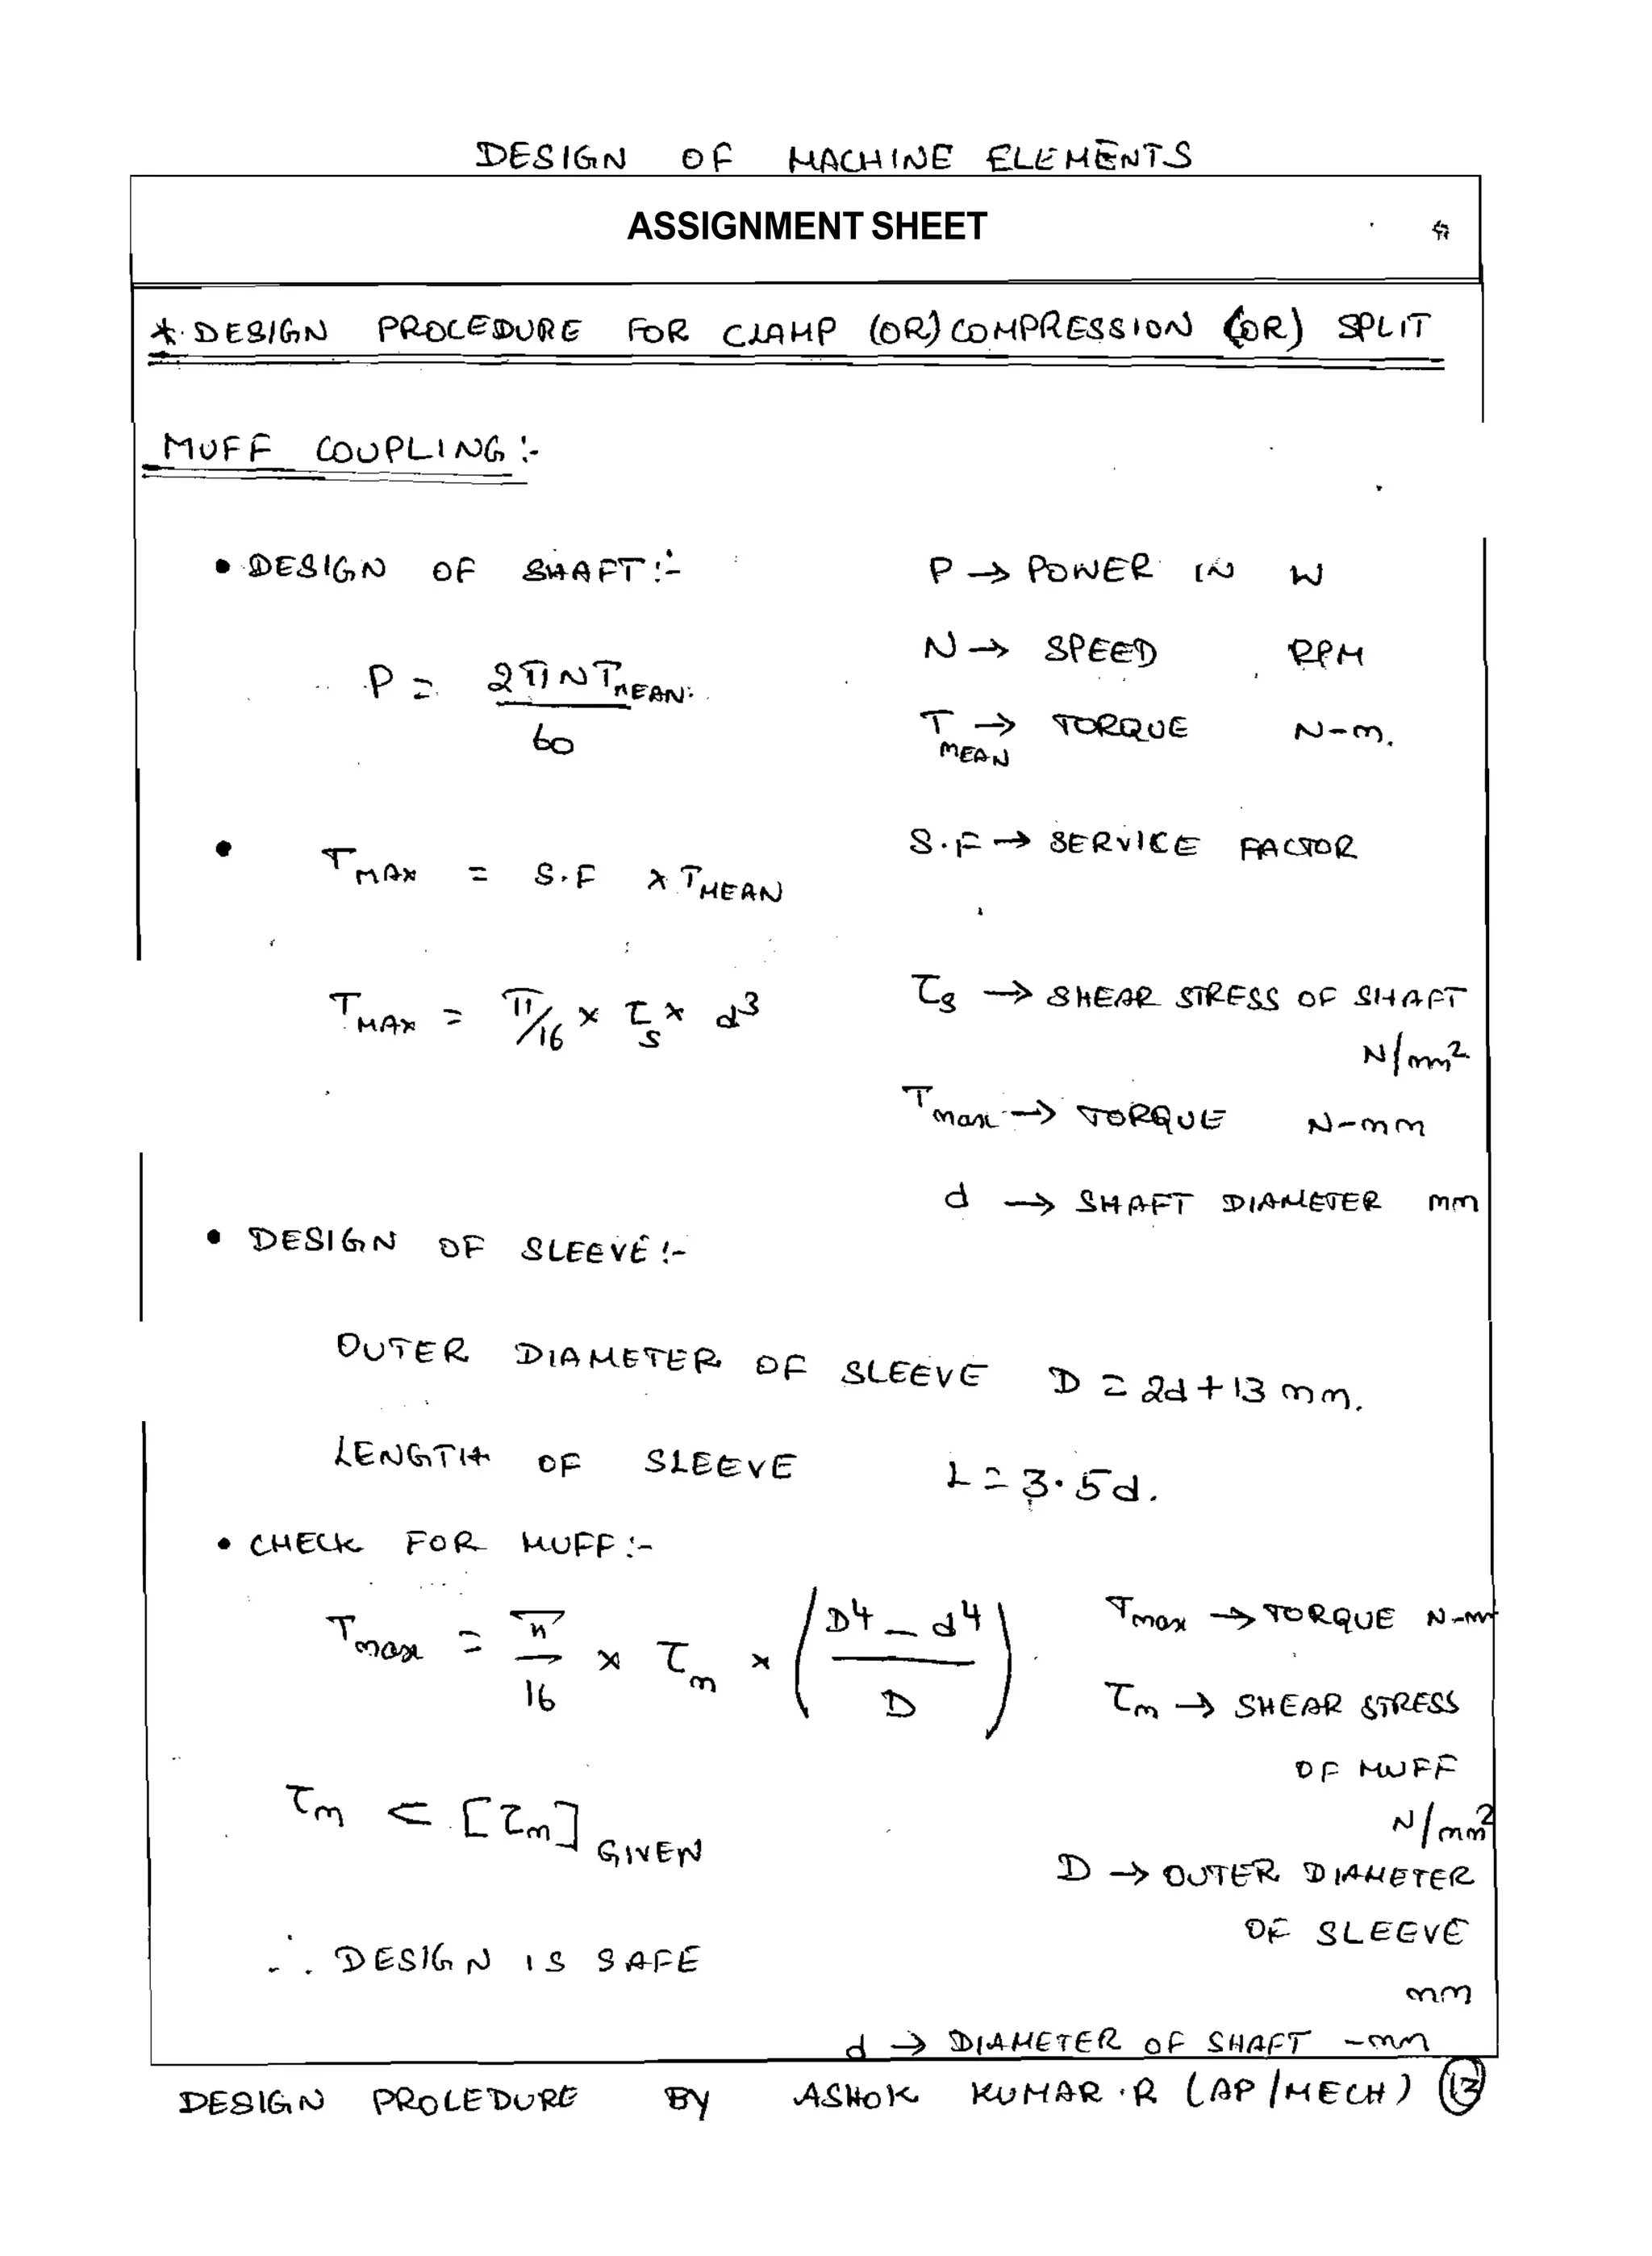 DESIGN OF MACHINE ELEMENTS
ASSIGNMENT SHEET
* DESIGN PROCEDURE FOR CLAMP (OR) COMPRESSION (OR) SPLIT
MUFF COUPLING :-
• DESIGN OF SHAFT :-
P → POWER IN W
N → SPEED RPM
P = 2πNT_MEAN / 60
T_MEAN → TORQUE N-m.
S.F → SERVICE FACTOR
• T_MAX = S.F × T_MEAN
τ_s → SHEAR STRESS OF SHAFT
T_MAX = π/16 × τ_s × d³
N/mm²
T_max → TORQUE N-mm
d → SHAFT DIAMETER mm
• DESIGN OF SLEEVE :-
OUTER DIAMETER OF SLEEVE D = 2d + 13 mm.
LENGTH OF SLEEVE L = 3.5d.
• CHECK FOR MUFF :-
T_max = π/16 × τ_m × (D⁴ - d⁴ / D)
T_max → TORQUE N-mm
τ_m → SHEAR STRESS
OF MUFF
N/mm²
τ_m < [τ_m] GIVEN
D → OUTER DIAMETER
OF SLEEVE
mm
∴ DESIGN IS SAFE
d → DIAMETER OF SHAFT - mm
DESIGN PROCEDURE BY ASHOK KUMAR.R (AP/MECH) 13